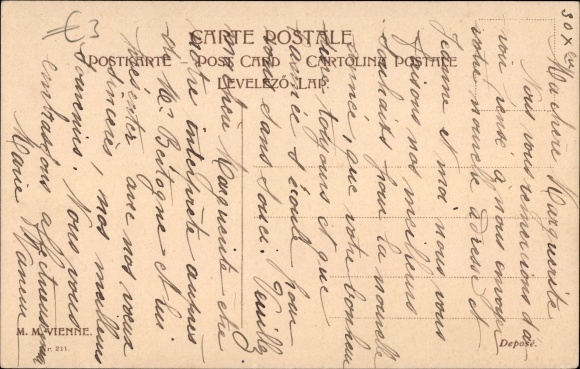 €3
30 X
CARTE POSTALE
POSTKARTE – POST CARD – CARTOLINA POSTALE
LEVELEZŐ-LAP.
Ma chère Marguerite
Nous vous remercions d'a-
voir pensé à nous envoyer
votre nouvelle adresse et
Jeanne et moi nous vous
faisons nos meilleurs
souhaits pour la nouvelle
année, que votre bonheur
dure toujours et que
l'année s'écoule pour
vous dans souci. Veuillez
ma chère Marguerite être
notre interprète auprès
de Mr Bestogne et lui
présenter avec nos vœux
sincères, nos meilleurs
souvenirs. Nous vous
embrassons affectueusement
Marie Vanne
M. M. VIENNE.
Nr. 211.
Deposé.